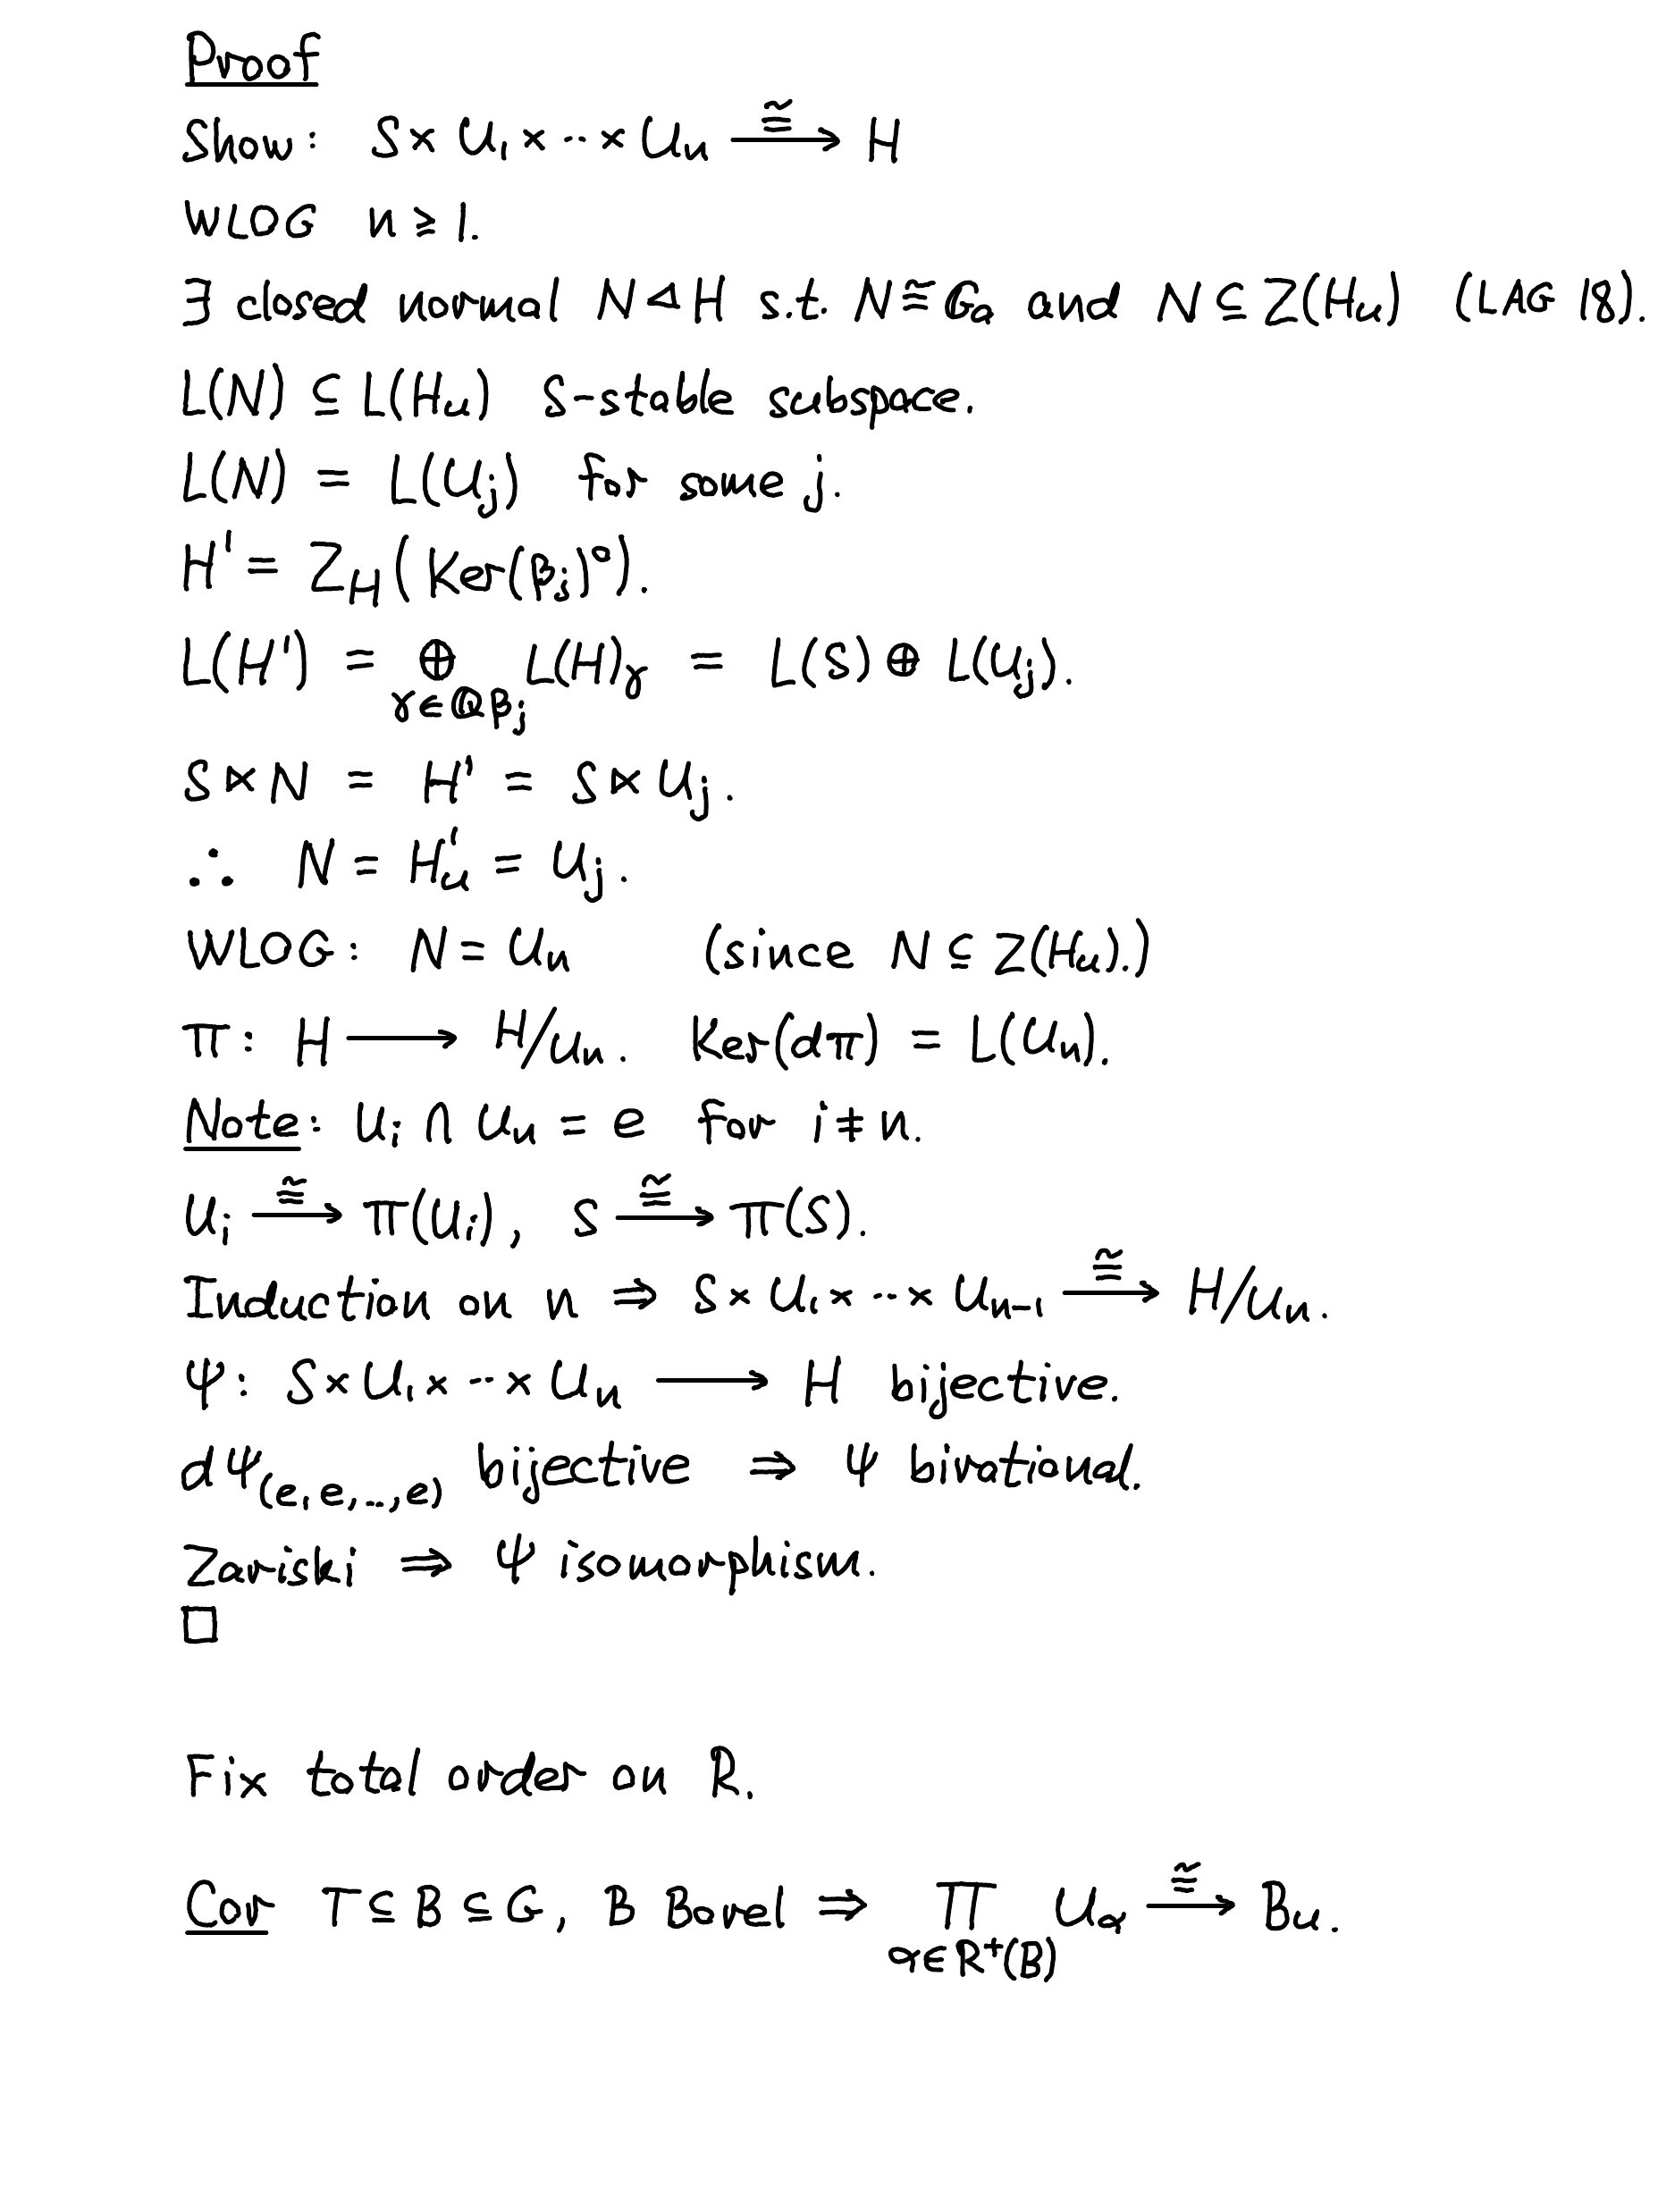 Proof
Show: S × U₁ × ·· × Uₙ ≅⟶ H
WLOG n ≥ 1.
∃ closed normal N ⊲ H s.t. N ≅ Gₐ and N ⊆ Z(Hᵤ) (LAG 18).
L(N) ⊆ L(Hᵤ) S-stable subspace.
L(N) = L(Uⱼ) for some j.
H' = Z_H(Ker(βⱼ)°).
L(H') = ⊕_{γ∈ℚβⱼ} L(H)_γ = L(S) ⊕ L(Uⱼ).
S ⋉ N = H' = S ⋉ Uⱼ.
∴ N = H'ᵤ = Uⱼ.
WLOG: N = Uₙ (since N ⊆ Z(Hᵤ).)
π: H ⟶ H/Uₙ. Ker(dπ) = L(Uₙ).
Note: Uᵢ ∩ Uₙ = e for i ≠ n.
Uᵢ ≅⟶ π(Uᵢ), S ≅⟶ π(S).
Induction on n ⇒ S × U₁ × ·· × Uₙ₋₁ ≅⟶ H/Uₙ.
Ψ: S × U₁ × ·· × Uₙ ⟶ H bijective.
dΨ_{(e,e,..,e)} bijective ⇒ Ψ birational.
Zariski ⇒ Ψ isomorphism.
□
Fix total order on R.
Cor T ⊆ B ⊆ G, B Borel ⇒ ∏_{α∈R⁺(B)} U_α ≅⟶ Bᵤ.